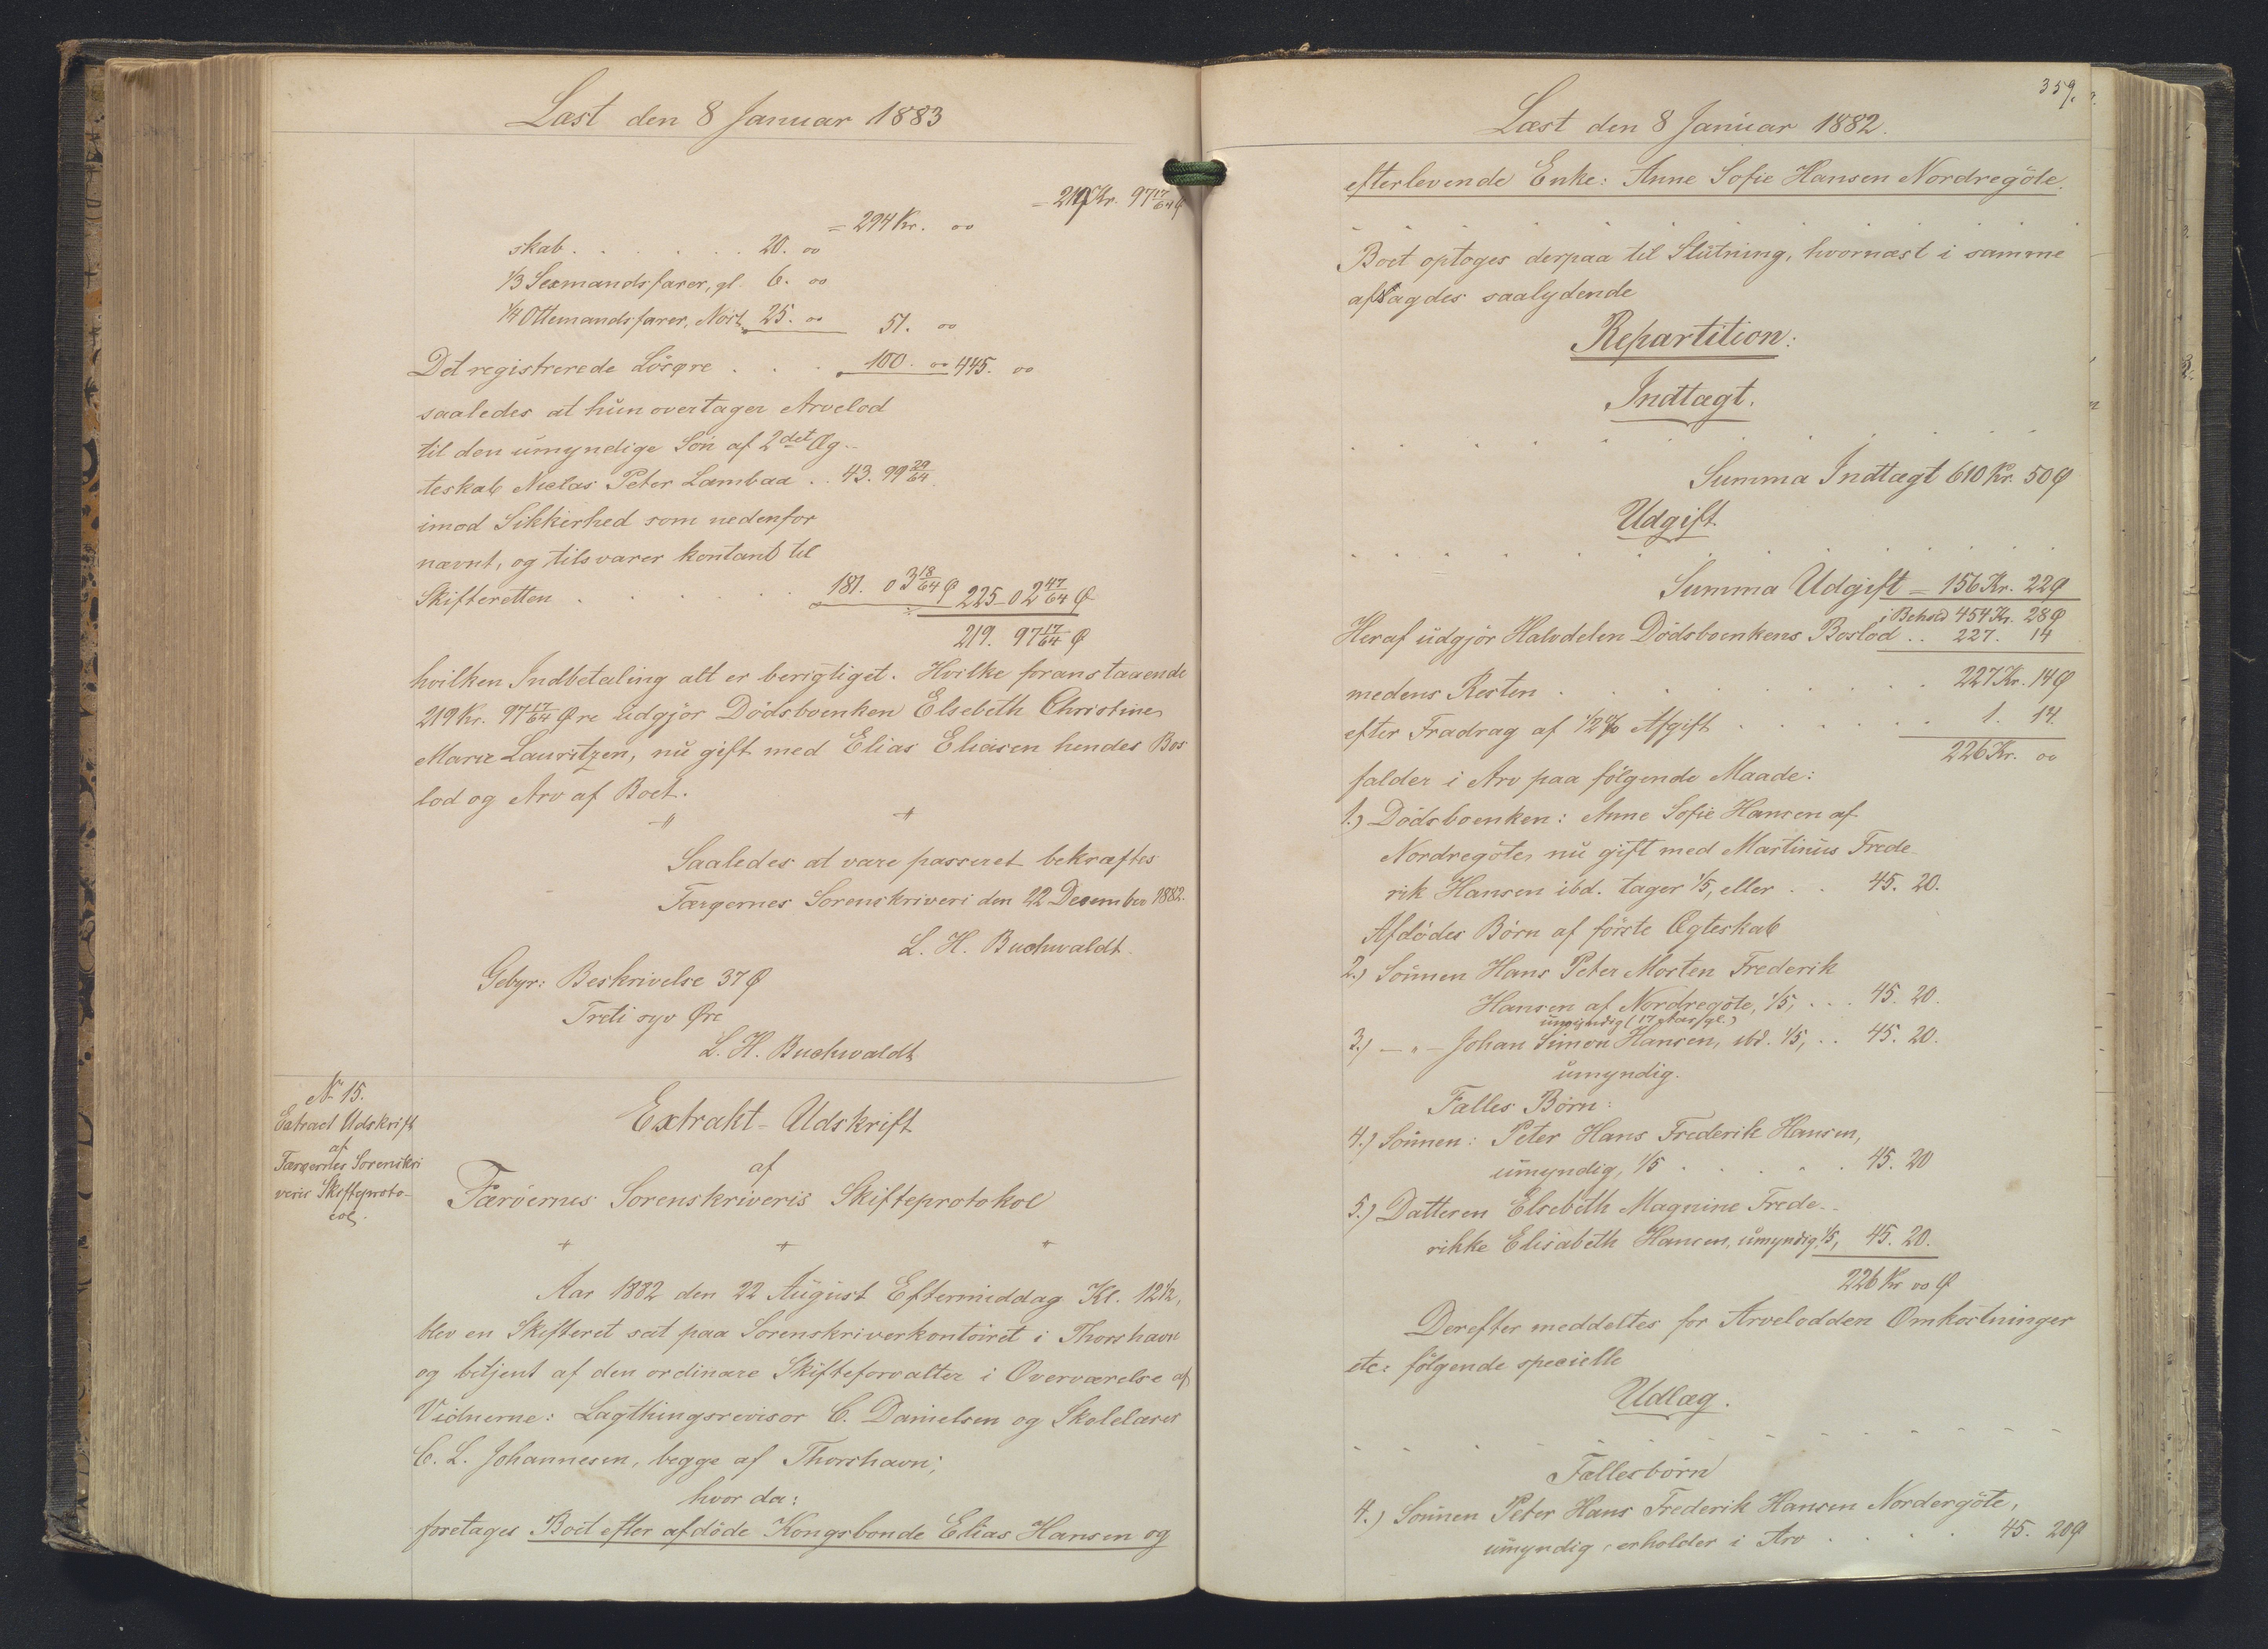 Læst den 8 Januar 1883
= 219 Kr. 97 17/64 Ø
= 294 Kr. 00
skab . . . . . . 20. 00
1/3 Sexmandsfarer, gl. 6. 00
1/4 Ottemandsfarer, Nóit, 25. 00 51. 00
Det registrerede Lösøre . . . 100. 00 445. 00
saaledes at hun overtager Arvelod
til den umyndige Søn af 2det Æg-
teskab Niclas Peter Lambaa . . 43. 99 29/64
imod Sikkerhed som nedenfor
nævnt, og tilsvarer kontant til
Skifteretten . . . . . . 181. 03 18/64 Ø 225 - 02 47/64 Ø
219. 97 17/64 Ø
hvilken Indbetaling alt er berigtiget. Hvilke foranstaaende
219 Kr. 97 17/64 Øre udgjör Dödsboenken Elsebeth Christine
Marie Lauritzen, nu gift med Elias Eliasen hendes Bos
lod og Arv af Boet.
Saaledes at være passeret bekræftes
Færøernes Sorenskriveri den 22 December 1882.
L. H. Buchwaldt.
Gebyr: Beskrivelse 37 Ø
Treti syv Øre
L. H. Buchwaldt
№ 15.
Extract Udskrift
af
Færøernes Sorenskri
veris Skifteproto-
col.
Extrakt-Udskrift
af
Færöernes Sorenskriveris Skifteprotokol
Aar 1882 den 22 August Eftermiddag Kl. 12 1/2,
blev en Skifteret sat paa Sorenskriverkontoiret i Thorshavn
og betjent af den ordinære Skifteforvalter i Overværelse af
Vidnerne: Lagthingsrevisor C. Danielsen og Skolelærer
C. L. Johannesen, begge af Thorshavn;
hvor da:
foretages Boet efter afdöde Kongsbonde Elias Hansen og
359.
Læst den 8 Januar 1882.
efterlevende Enke: Anne Sofie Hansen Nordregöte.
. . . . . . . . . . .
Boet optoges derpaa til Slutning, hvornæst i samme
afsagdes saalydende
Repartition:
Indtægt.
. . . . . . . . . . .
Summa Indtægt 610 Kr. 50 Ø
Udgift.
. . . . . . . . . . .
Summa Udgift = 156 Kr. 22 Ø
i Behold 454 Kr. 28 Ø
Heraf udgjör Halvdelen Dödsboenkens Boslod . . 227. 14
medens Resten . . . . . . . . . . 227 Kr. 14 Ø
efter Fradrag af 1/2 % Afgift . . . . . . 1. 14.
226 Kr. 00
falder i Arv paa fölgende Maade:
1.) Dödsboenken: Anne Sofie Hansen af
Nordregöte, nu gift med Martinus Frede-
rik Hansen ibd. tager 1/5, eller . . 45. 20.
Afdödes Börn af förste Ægteskab
2.) Sönnen Hans Peter Morten Frederik
Hansen af Nordregöte, 1/5, . . . 45. 20.
umyndig (17 Aar gl.)
3.) - " - Johan Simon Hansen, ibd. 1/5, . . 45. 20.
umyndig.
Fælles Börn:
4.) Sönnen: Peter Hans Frederik Hansen,
umyndig, 1/5 . . . . . 45. 20
5.) Datteren Elsebeth Magnine Frede-
rikke Elisabeth Hansen, umyndig, 1/5, 45. 20.
226 Kr 00 Ø
Derefter meddeltes for Arvelodden Omkostninger
etc. fölgende specielle
Udlæg.
. . . . . . . . . . .
Fællesbörn
4.) Sönnen Peter Hans Frederik Hansen Nordergöte,
umyndig, erholder i Arv . . . . 45. 20 Ø